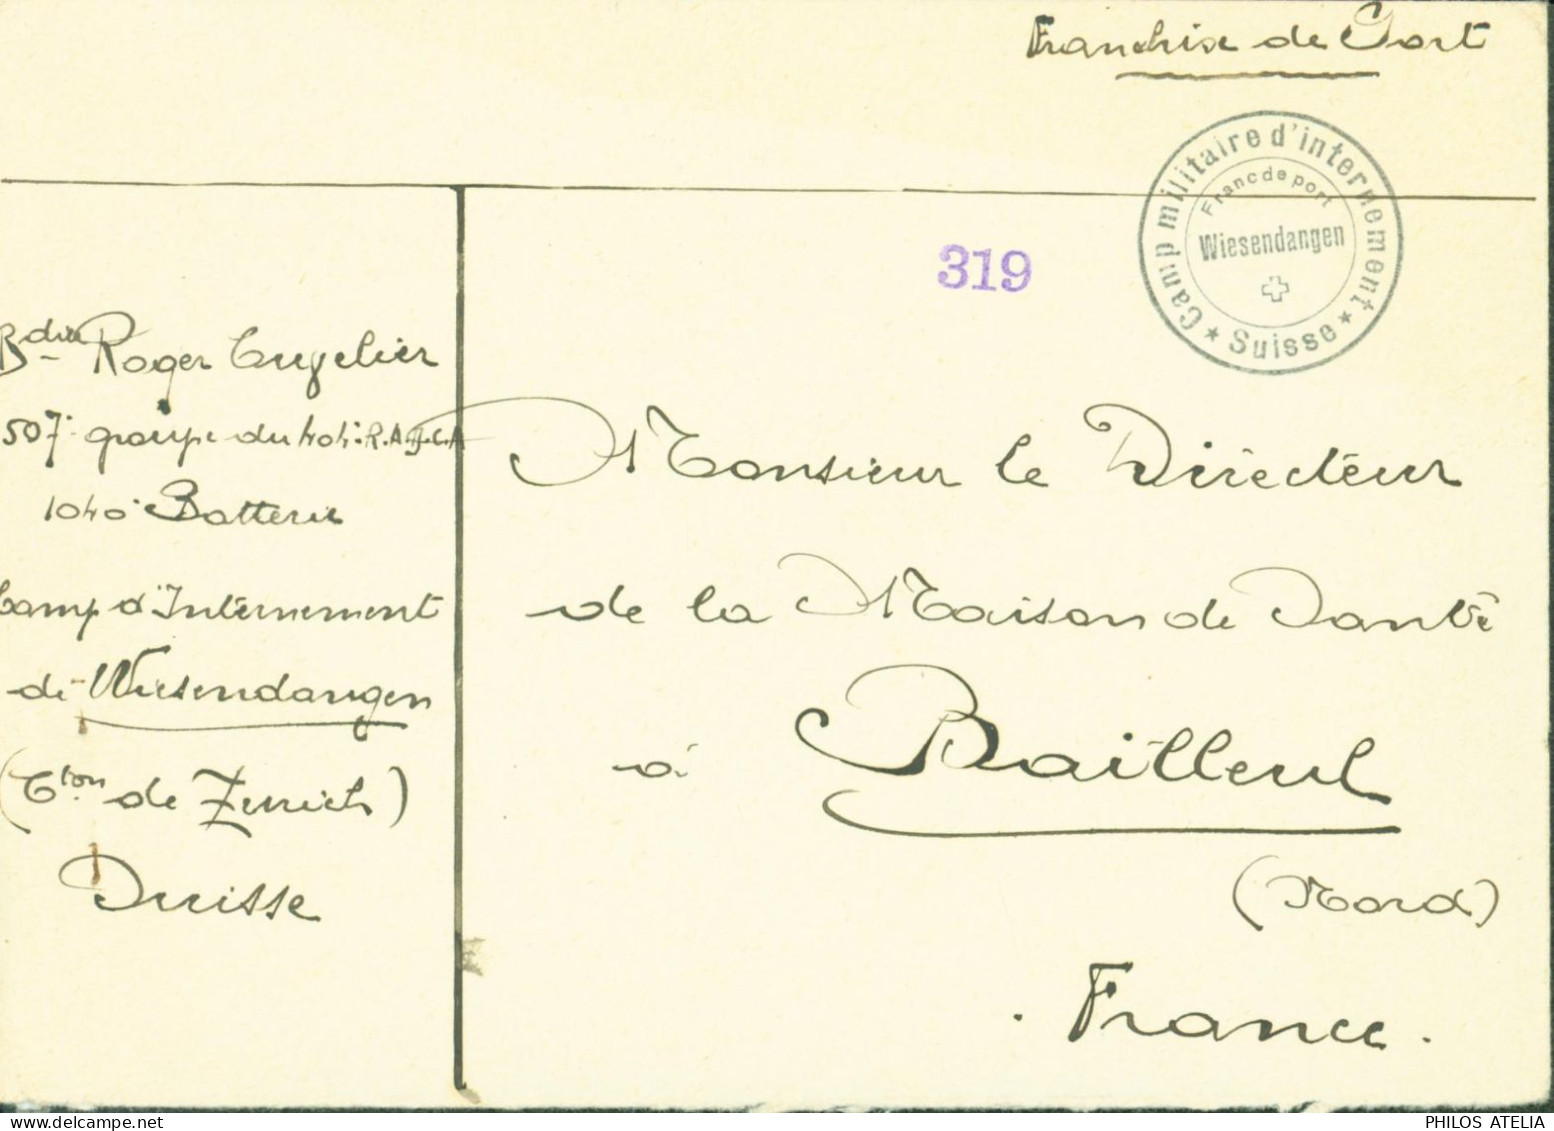 Franchise de Port
Camp militaire d'internement
Franc de port
Wiesendangen
★ Suisse ★
319
Bdier Roger Cuvelier
507e groupe du 404e R.A.F.C.A
1040e Batterie
Camp d'Internement
de Wiesendangen
(Cton de Zurich)
Suisse
Monsieur le Directeur
de la Maison de Santé
à Bailleul
(Nord)
. France.
PHILOS ATELIA